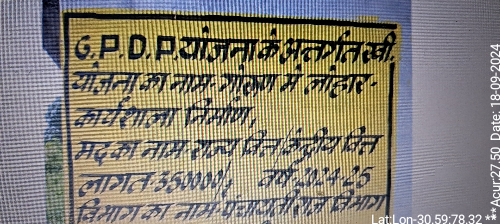 G.P.D.P. योजना के अन्तर्गत स्वी.
योजना का नाम- गोरूण में लोहार-
कार्यशाला निर्माण,
मद का नाम- राज्य वित्त/केन्द्रीय वित्त
लागत-350000/, वर्ष-2024-25
विभाग का नाम-पंचायतीराज विभाग
Lat:Lon-30.59:78.32 ** *
our:27.50 Date: 18-09-2024